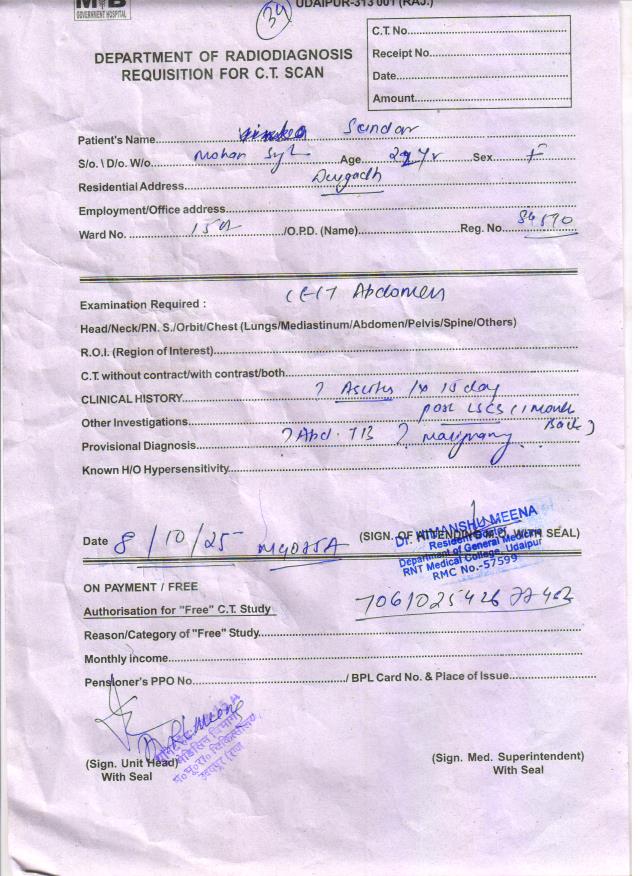 MB
GOVERNMENT HOSPITAL
UDAIPUR-313 001 (RAJ.)
34
DEPARTMENT OF RADIODIAGNOSIS
REQUISITION FOR C.T. SCAN
C.T. No.
Receipt No.
Date
Amount
Patient's Name Sundar
S/o. \ D/o. W/o Mohan Age Yr Sex F
Residential Address
Employment/Office address
Ward No. /O.P.D. (Name) Reg. No.
Examination Required : Abdomen
Head/Neck/P.N. S./Orbit/Chest (Lungs/Mediastinum/Abdomen/Pelvis/Spine/Others)
R.O.I. (Region of Interest)
C.T. without contract/with contrast/both
CLINICAL HISTORY ? 15 day
Other Investigations post LSCS (1 month Back)
Provisional Diagnosis ? Abd. TB ? malignany
Known H/O Hypersensitivity
Date 8/10/25 (SIGN. OF ATTENDING M.O. WITH SEAL)
Dr. HIMANSHU MEENA
Resident Doctor
Department of General Medicine
RNT Medical College, Udaipur
RMC No.-57599
ON PAYMENT / FREE
Authorisation for "Free" C.T. Study
Reason/Category of "Free" Study
Monthly income
Pensioner's PPO No. / BPL Card No. & Place of Issue
मेडिसिन विभाग
(Sign. Unit Head)
With Seal
(Sign. Med. Superintendent)
With Seal